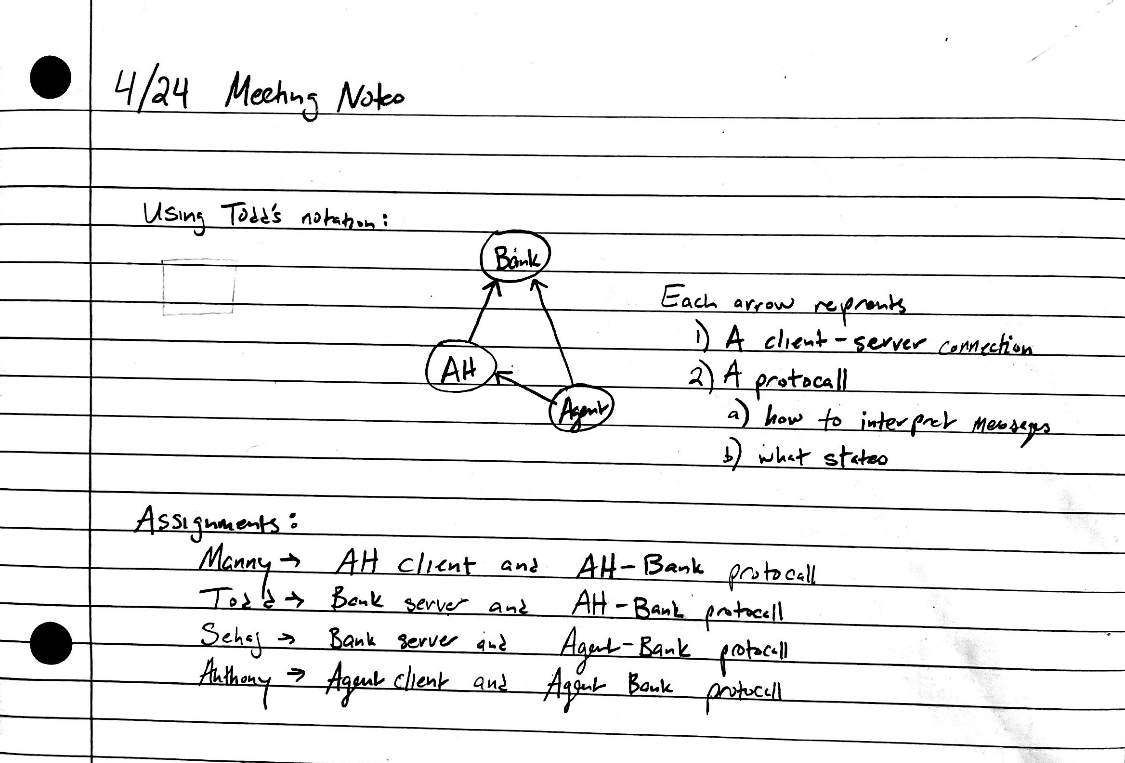 4/24 Meeting Notes
Using Todd's notation:
Bank
AH
Agent
Each arrow reprents
1) A client-server connection
2) A protocall
a) how to interpret messages
b) what states
Assignments:
Manny → AH client and AH-Bank protocall
Todd → Bank server and AH-Bank protocall
Sehaj → Bank server and Agent-Bank protocall
Anthony → Agent client and Agent Bank protocall